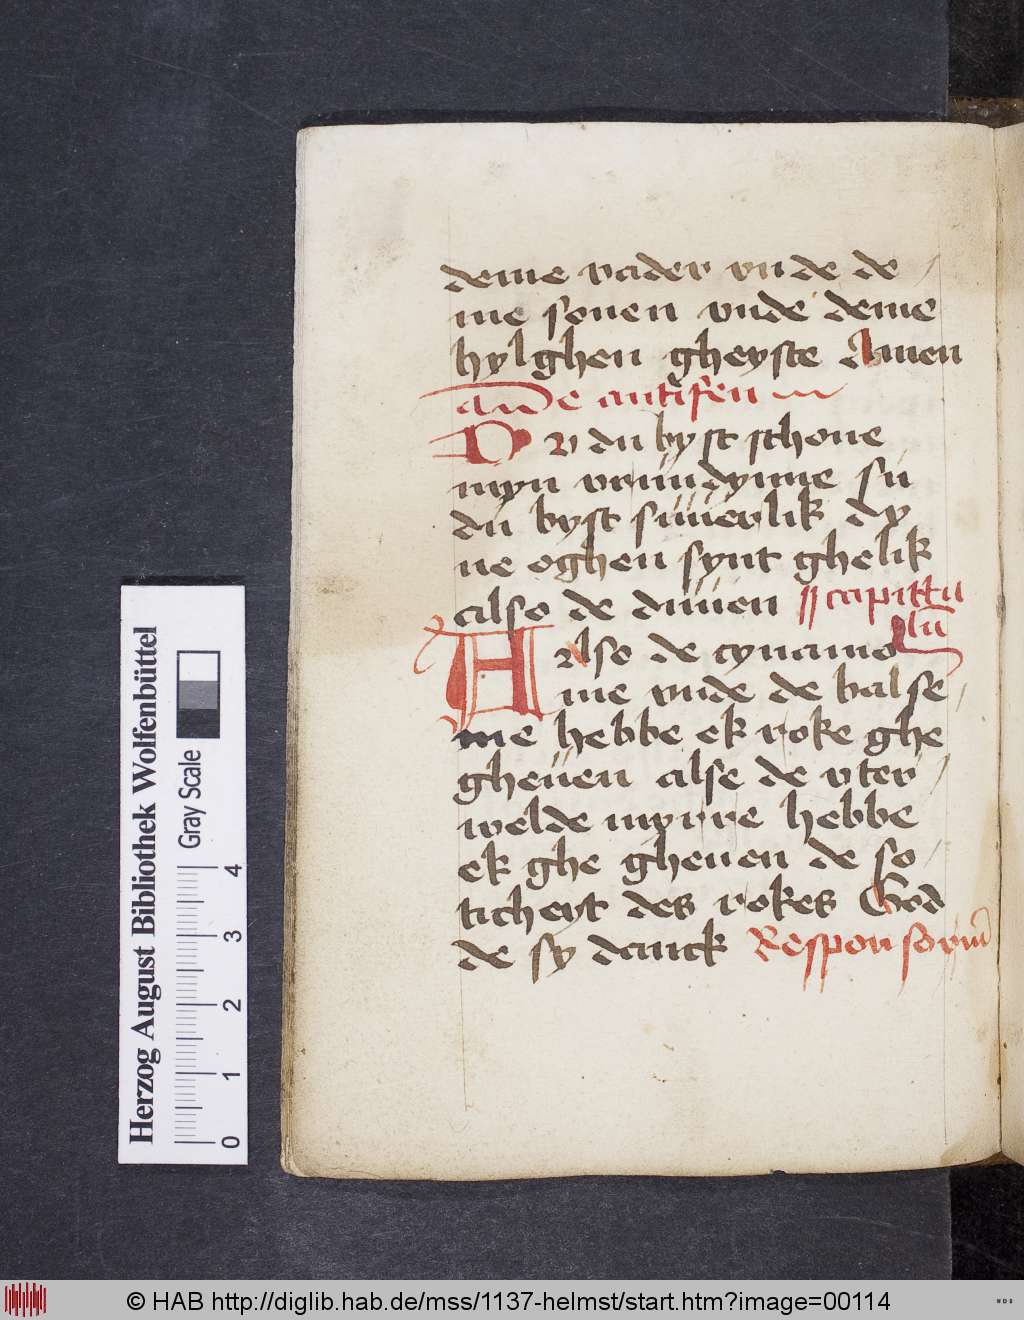 deme vader vn de de /
me sonen vnde deme
hylghen gheyste Amen
antifen
Du du byst schone
myn vrundynne su
du byst suuerlik dy
ne oghen synt ghelik
also de duuen capittu
lu
Also de cynamo
me vnde de balse /
me hebbe ek roke ghe
gheuen alse de vter /
welde myrre hebbe
ek ghe gheuen de so /
ticheyt des rokes God
de sy danck Responsorium
Herzog August Bibliothek Wolfenbüttel
Gray Scale
0 1 2 3 4
© HAB http://diglib.hab.de/mss/1137-helmst/start.htm?image=00114